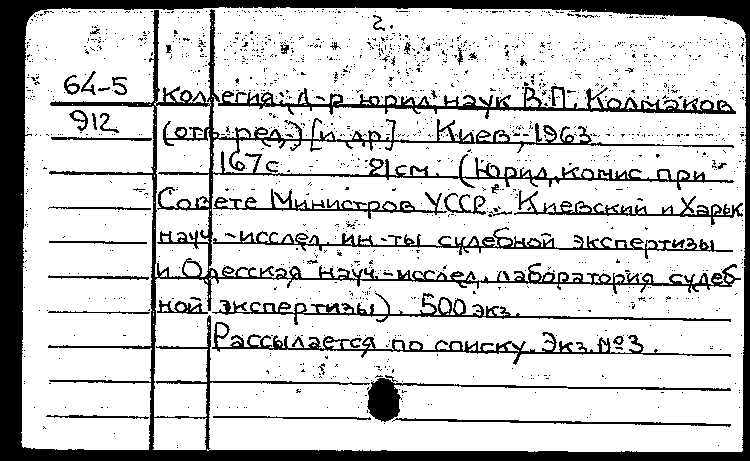 2.
64-5 коллегия: д-р юрид. наук В.П. Колмаков
912 (отв. ред.) [и др.] Киев, 1963.
167 с. 21 см. (Юрид. комис. при
Совете Министров УССР. Киевский и Харьк.
науч.-исслед. ин-ты судебной экспертизы
и Одесская науч.-исслед. лаборатория судеб-
ной экспертизы). 500 экз.
Рассылается по списку. Экз. №3.